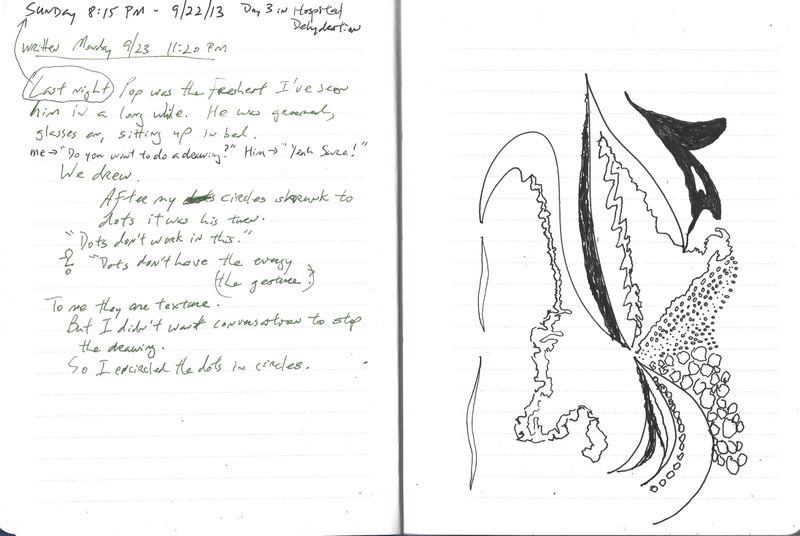 Sunday 8:15 PM - 9/22/13 Day 3 in Hospital
Dehydration
Written Monday 9/23 11:20 PM
"Last night Pop was the freshest I've seen
him in a long while. He was groomed,
glasses on, sitting up in bed.
me → "Do you want to do a drawing?" Him → "Yeah Sure!"
We drew.
After my circles shrunk to
dots it was his turn.
"Dots don't work in this."
? "Dots don't have the energy
(the gesture?)
To me they are texture.
But I didn't want conversation to stop
the drawing.
So I encircled the dots in circles.